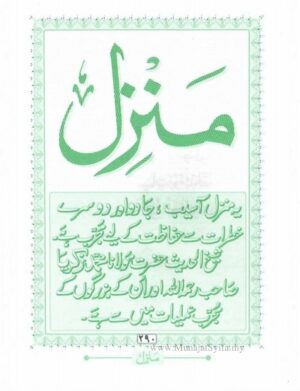 مَنْزِل
یہ منزل آسیب، جادو اور دوسرے
خطرات سے حفاظت کے لیے مجرب ہے۔
شیخ الحدیث حضرت مولانا محمد زکریا
صاحب رحمہ اللہ اور ان کے بزرگوں کے
مجرب عملیات میں سے ہے۔
۲۹۰
منزل